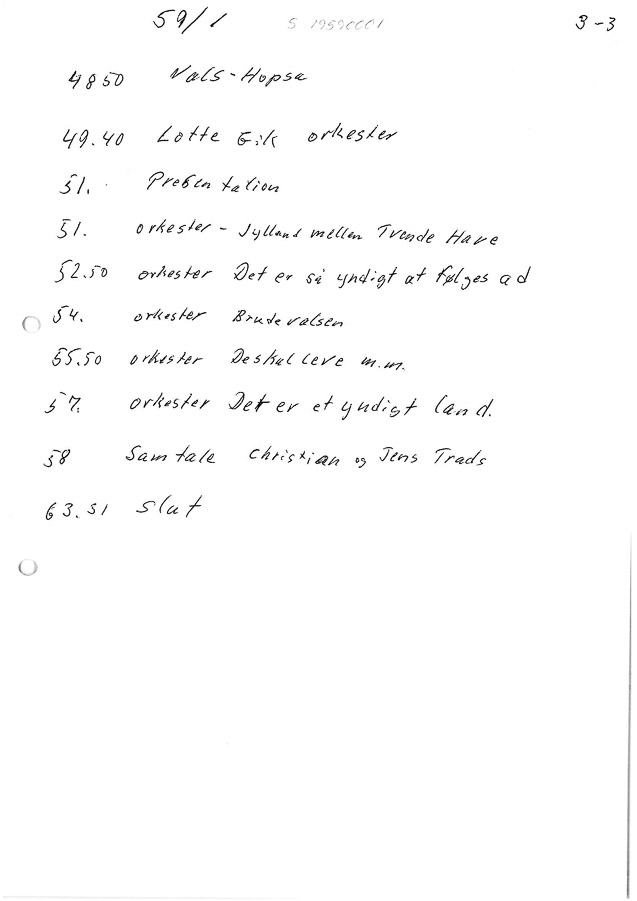 59/1 S 19590001 3-3
4850 Vals-Hopsa
49.40 Lotte Eik orkester
51. Presentation
51. orkester - Jylland mellen Tvende Have
52.50 orkester Det er så yndigt at følges ad
54. orkester Brudevalsen
55.50 orkester De skal leve m.m.
57. orkester Det er et yndigt land.
58 Samtale Christian og Jens Trads
63.51 Slut